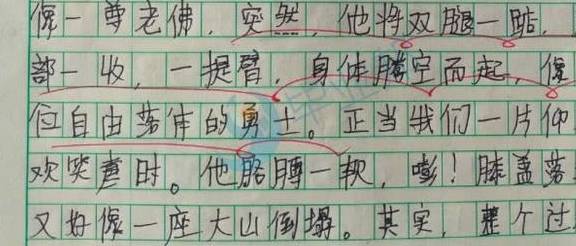 像一尊老佛，突然，他将双腿一踮，
部一收，一提臂，身体腾空而起，像
位自由落体的勇士。正当我们一片仰
欢笑声时。他胳膊一软，嘭！膝盖落
又好像一座大山倒塌。其实，整个过